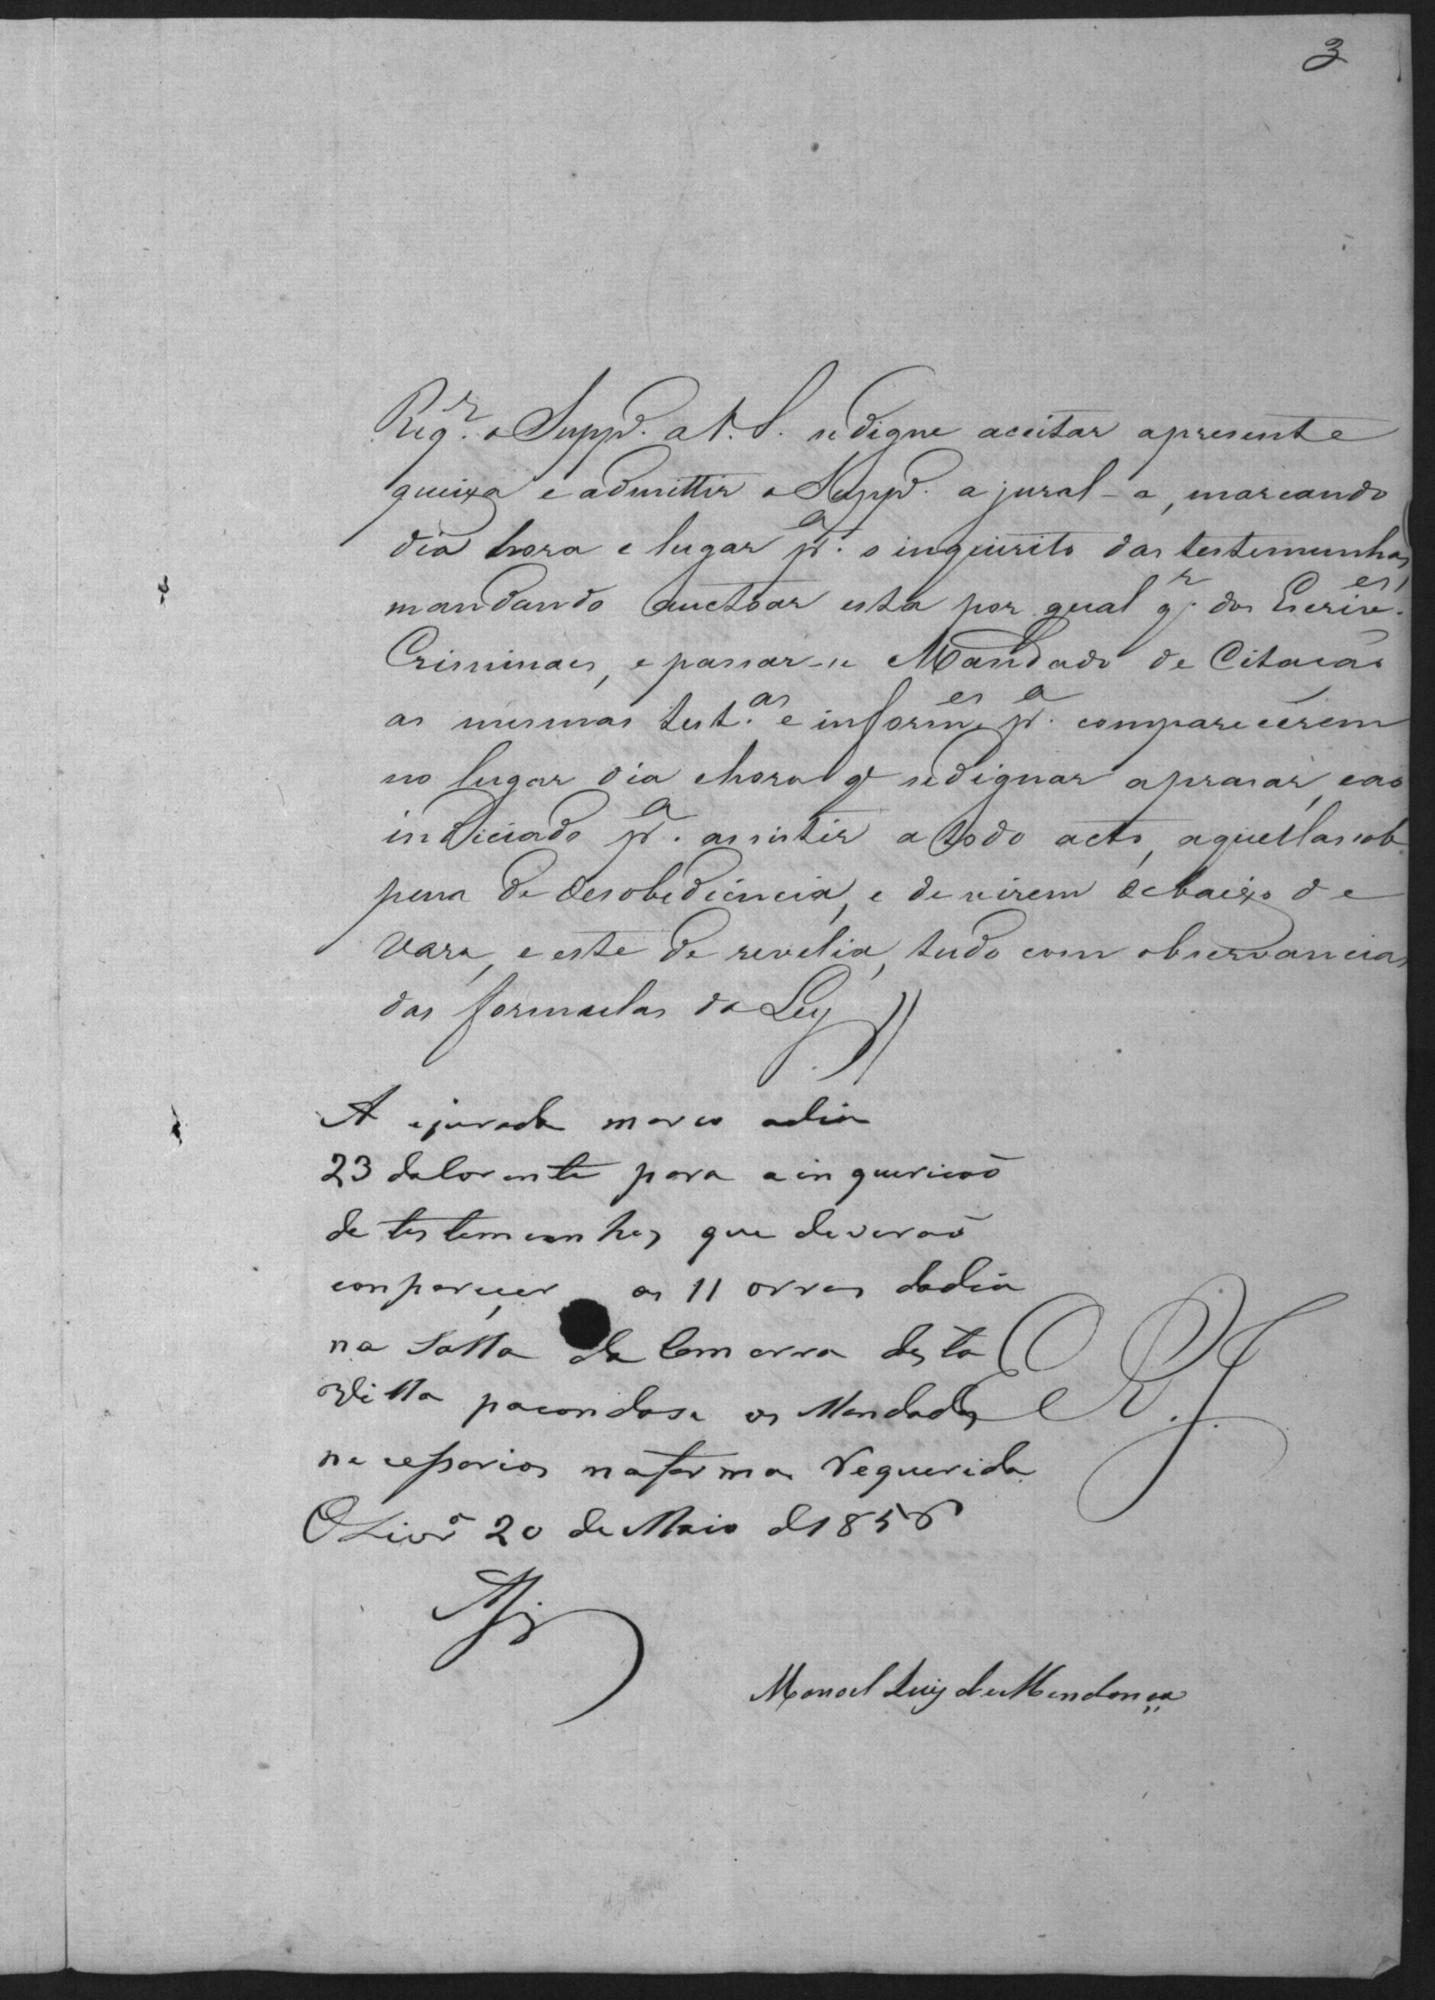 3
Req.r o Supp.e a V. S. se digne aceitar apresente
queixa e admittir o Supp.e a jural-a, marcando
dia hora e lugar p.a o inquirito das testemunhas
mandando auctoar esta por qual q.r dos Escriv.es
Criminaes, e passar-se Mandado de Citacão
as mesmas test.as e inform.es p.a comparecerem
no lugar dia ehora q' sedignar aprasar, eao
indiciado p.a assistir a todo acto, aquellas sob
pena de desobediencia, e de virem debaixo de
vara, e este de revelia, tudo com observancias
das formulas da Ley
A ejurada marco adia
23 docorente para ainquericaõ
de testemunhas que deveraõ
conparecer as 11 orras dodia
na Salla da Camarra desta
Villa pacandose os Mandados
necessarios naforma Requerida
Oliv.a 20 de Maio d1856
E. R. J.
Manoel Luiz de Mendonça